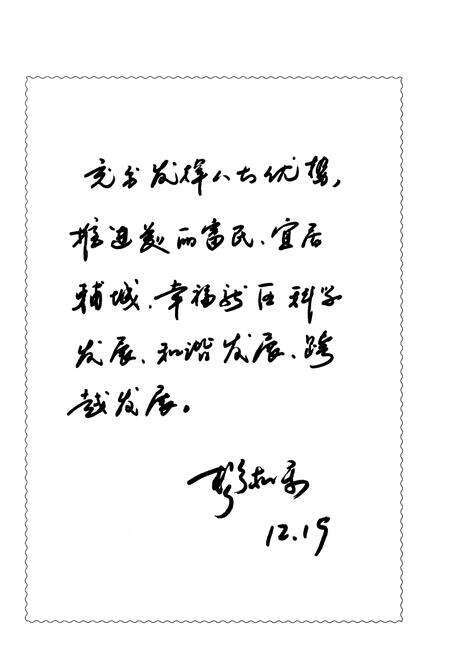 充分发挥人才优势，
推进美丽富民、宜居
辅城、幸福新区科学
发展、和谐发展、跨
越发展。
12.19